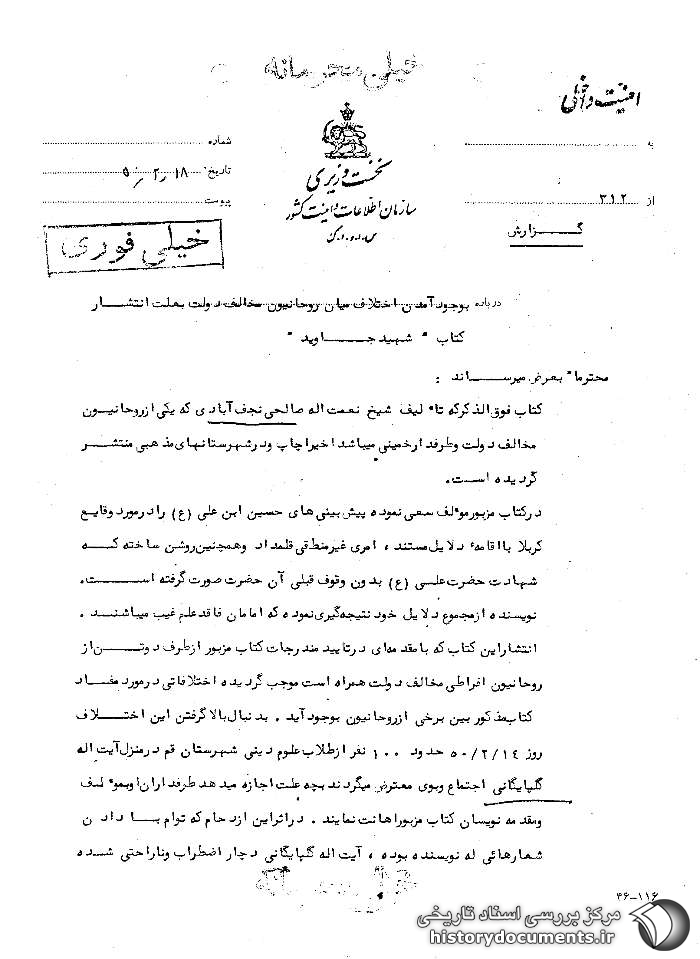 خیلی محرمانه
امنیت داخلی
به
از ۳۱۲
نخست وزیری
سازمان اطلاعات و امنیت کشور
س.ا.و.ا.ک
شماره
تاریخ ۵۰/۲/۱۸
پیوست
خیلی فوری
گزارش
درباره بوجود آمدن اختلاف میان روحانیون مخالف دولت بعلت انتشار
کتاب " شهید جاوید "
محترما" بعرض میرساند :
کتاب فوق الذکر که تاء لیف شیخ نعمت اله صالحی نجف آبادی که یکی از روحانیون
مخالف دولت و طرفدار خمینی میباشد اخیرا چاپ و در شهرستانهای مذهبی منتشر
گردیده است.
در کتاب مزبور موءلف سعی نموده پیش بینی های حسین ابن علی (ع) را در مورد وقایع
کربلا با اقامهء دلایل مستند ، امری غیر منطقی قلمداد و همچنین روشن ساخته که
شهادت حضرت علی (ع) بدون وقوف قبلی آن حضرت صورت گرفته است.
نویسنده از مجموع دلایل خود نتیجه گیری نموده که امامان فاقد علم غیب میباشند .
انتشار این کتاب که با مقدمه ای در تایید مندرجات کتاب مزبور از طرف دو تن از
روحانیون افراطی مخالف دولت همراه است موجب گردیده اختلافاتی در مورد مفاد
کتاب مذکور بین برخی از روحانیون بوجود آید . بدنبال بالا گرفتن این اختلاف
روز ۵۰/۲/۱۴ حدود ۱۰۰ نفر از طلاب علوم دینی شهرستان قم در منزل آیت اله
گلپایگانی اجتماع و بوی معترض میگردند بچه علت اجازه میدهد طرفداران او بموء لف
و مقدمه نویسان کتاب مزبور اهانت نمایند . در اثر این ازدحام که توام با دادن
شعارهائی له نویسنده بوده ، آیت اله گلپایگانی دچار اضطراب و ناراحتی شده
۳۶-۱۱۶
مرکز بررسی اسناد تاریخی
historydocuments.ir